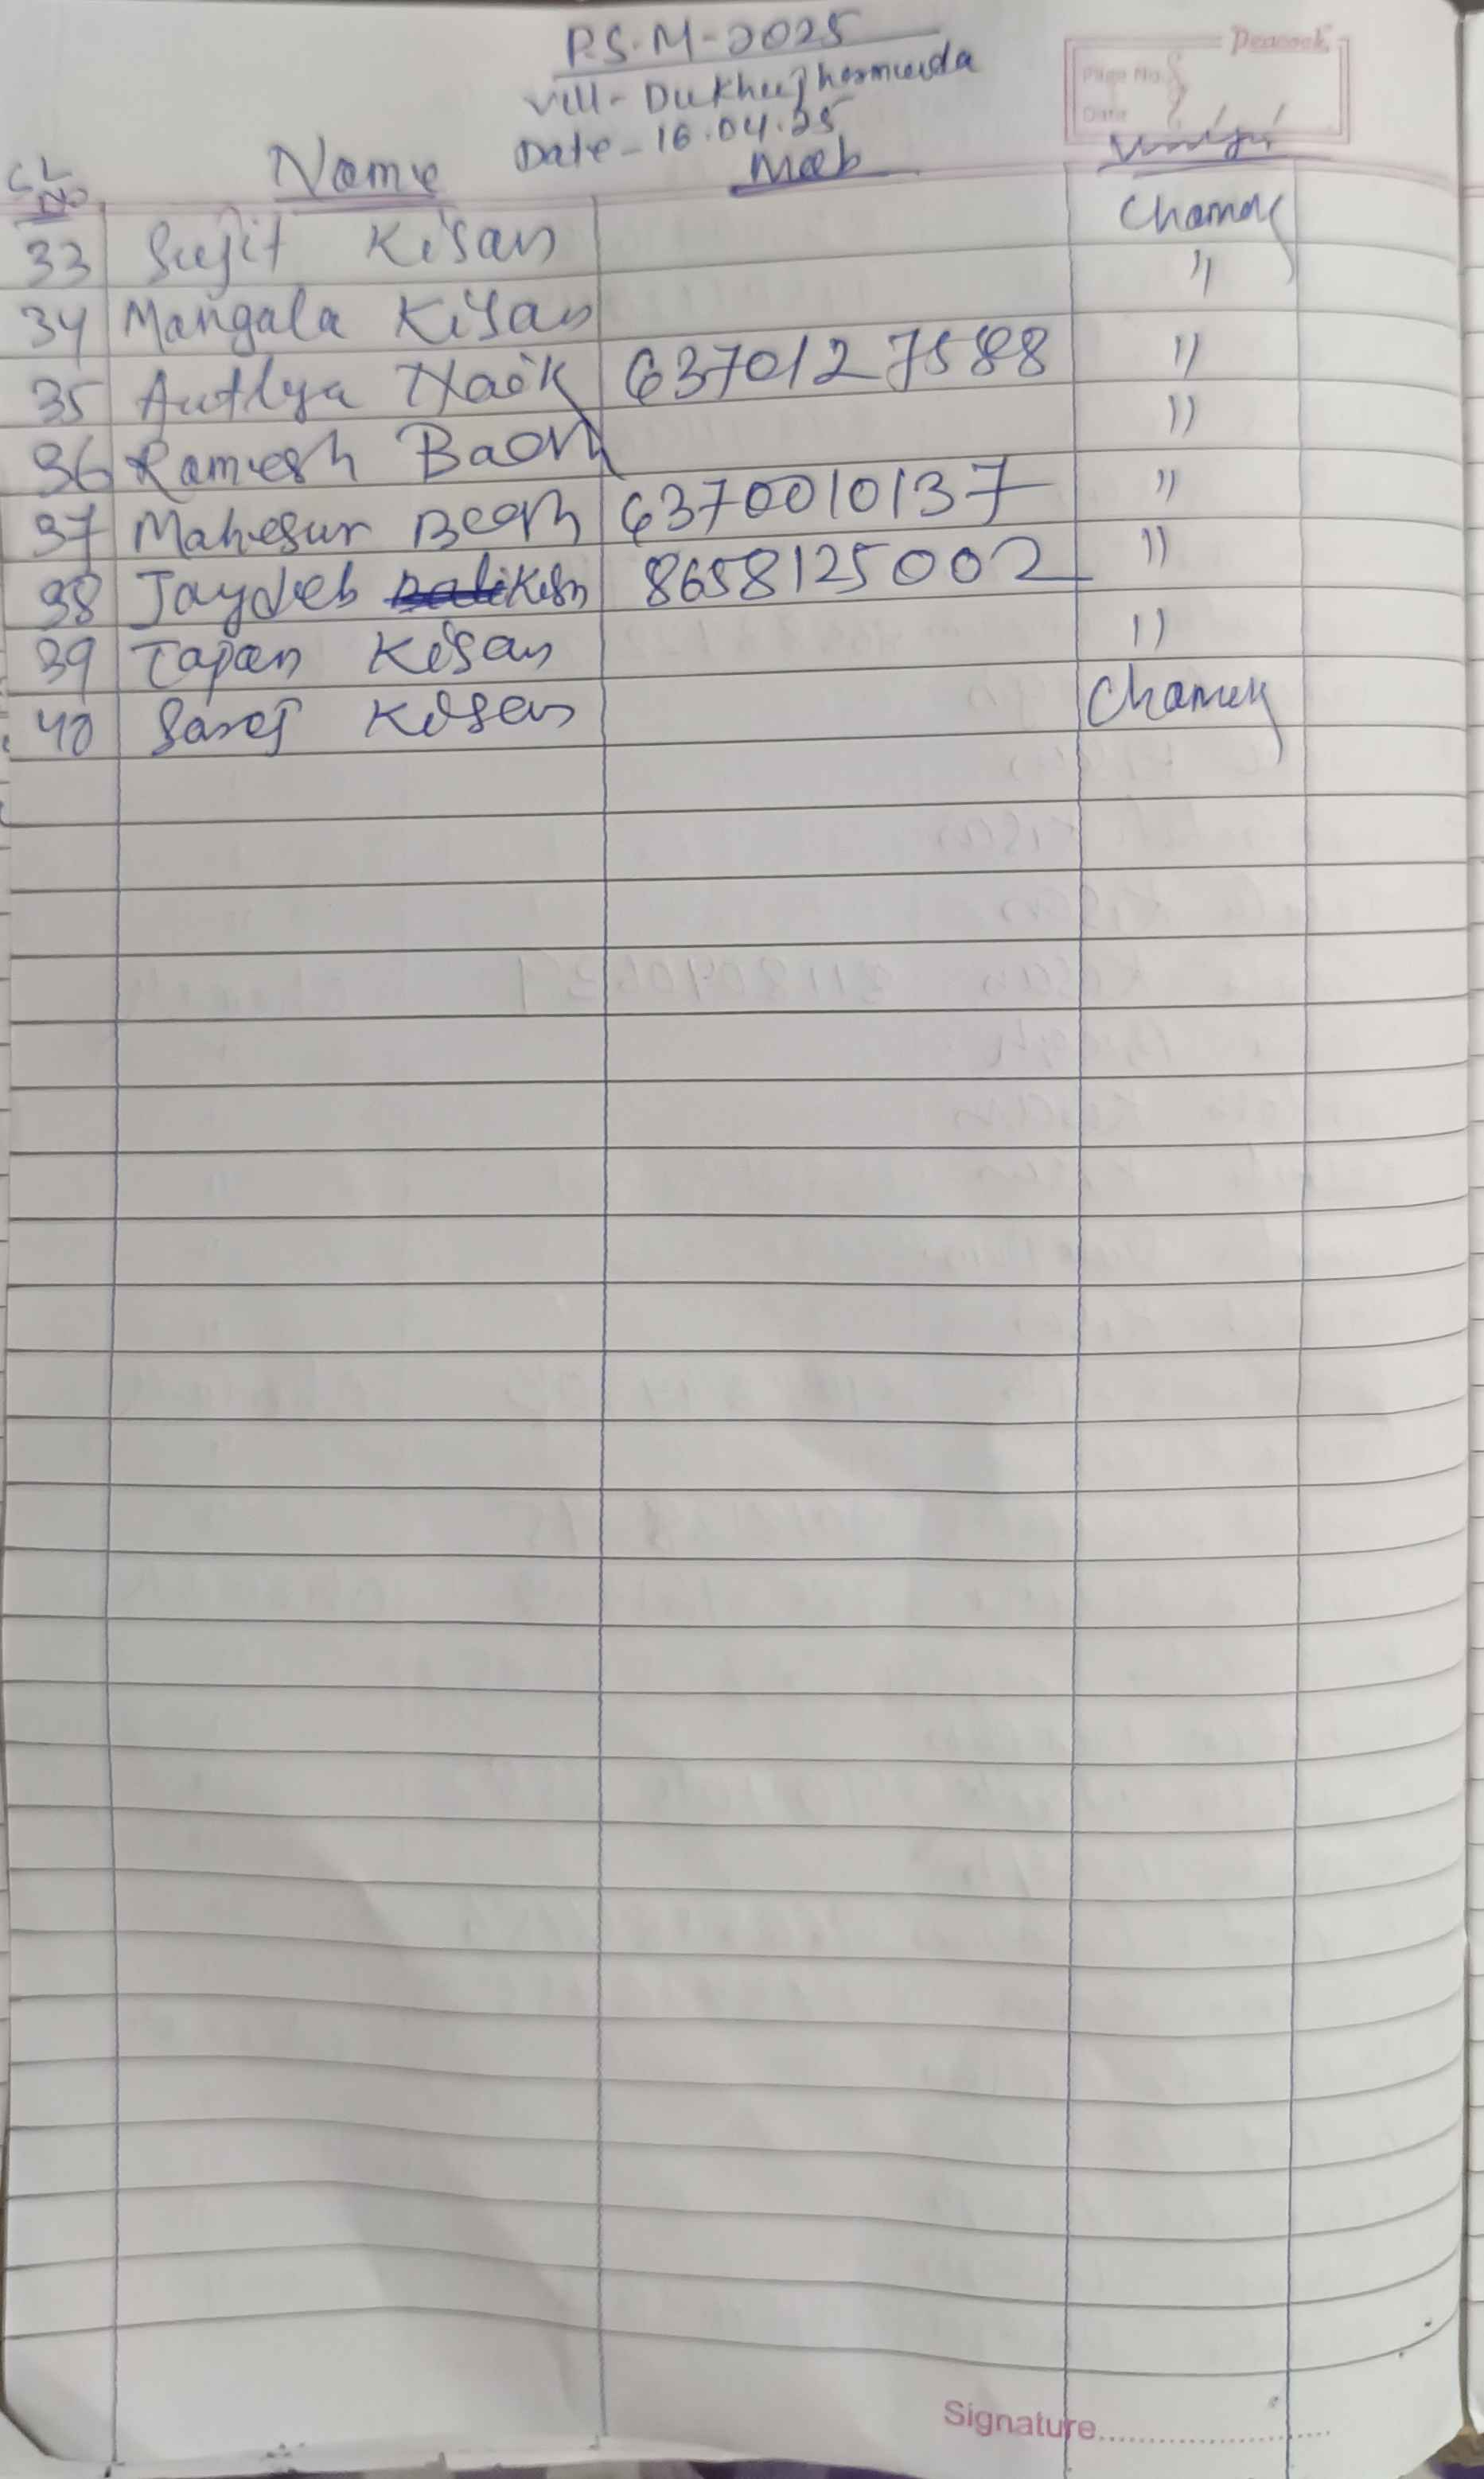 P.S.M-2025
Peacock
Vill- Dukhujharmunda
Page No. 8
Date
Date - 16.04.25
SL NO Name Mob
33 Sujit Kisan Chamar
34 Mangala Kisan "
35 Naik 6370127588 "
36 Ramesh Bagh "
37 Mahesur Bagh 6370010137 "
38 Jaydeb Kisan 8658125002 "
39 Tapan Kisan "
40 Saroj Kisan
Signature